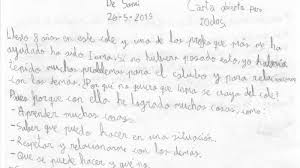 De Sami
Carta abierta para
26-5-2015
todos.
Llevo 8 años en este cole y uno de los profes que más me
ayudado ha sido Inma. Si no hubiera pasado esto yo habría
tenido muchos problemas para el estudio y para relacionarme
con los demás. ¿Por qué no quiero que Inma se vaya del cole?
Pues porque con ella he logrado muchas cosas, como:
- Aprender muchas cosas.
- Saber que puedo hacer en una situación.
- Respetar y relacionarme con los demás.
- Que se puede hacer y que no.